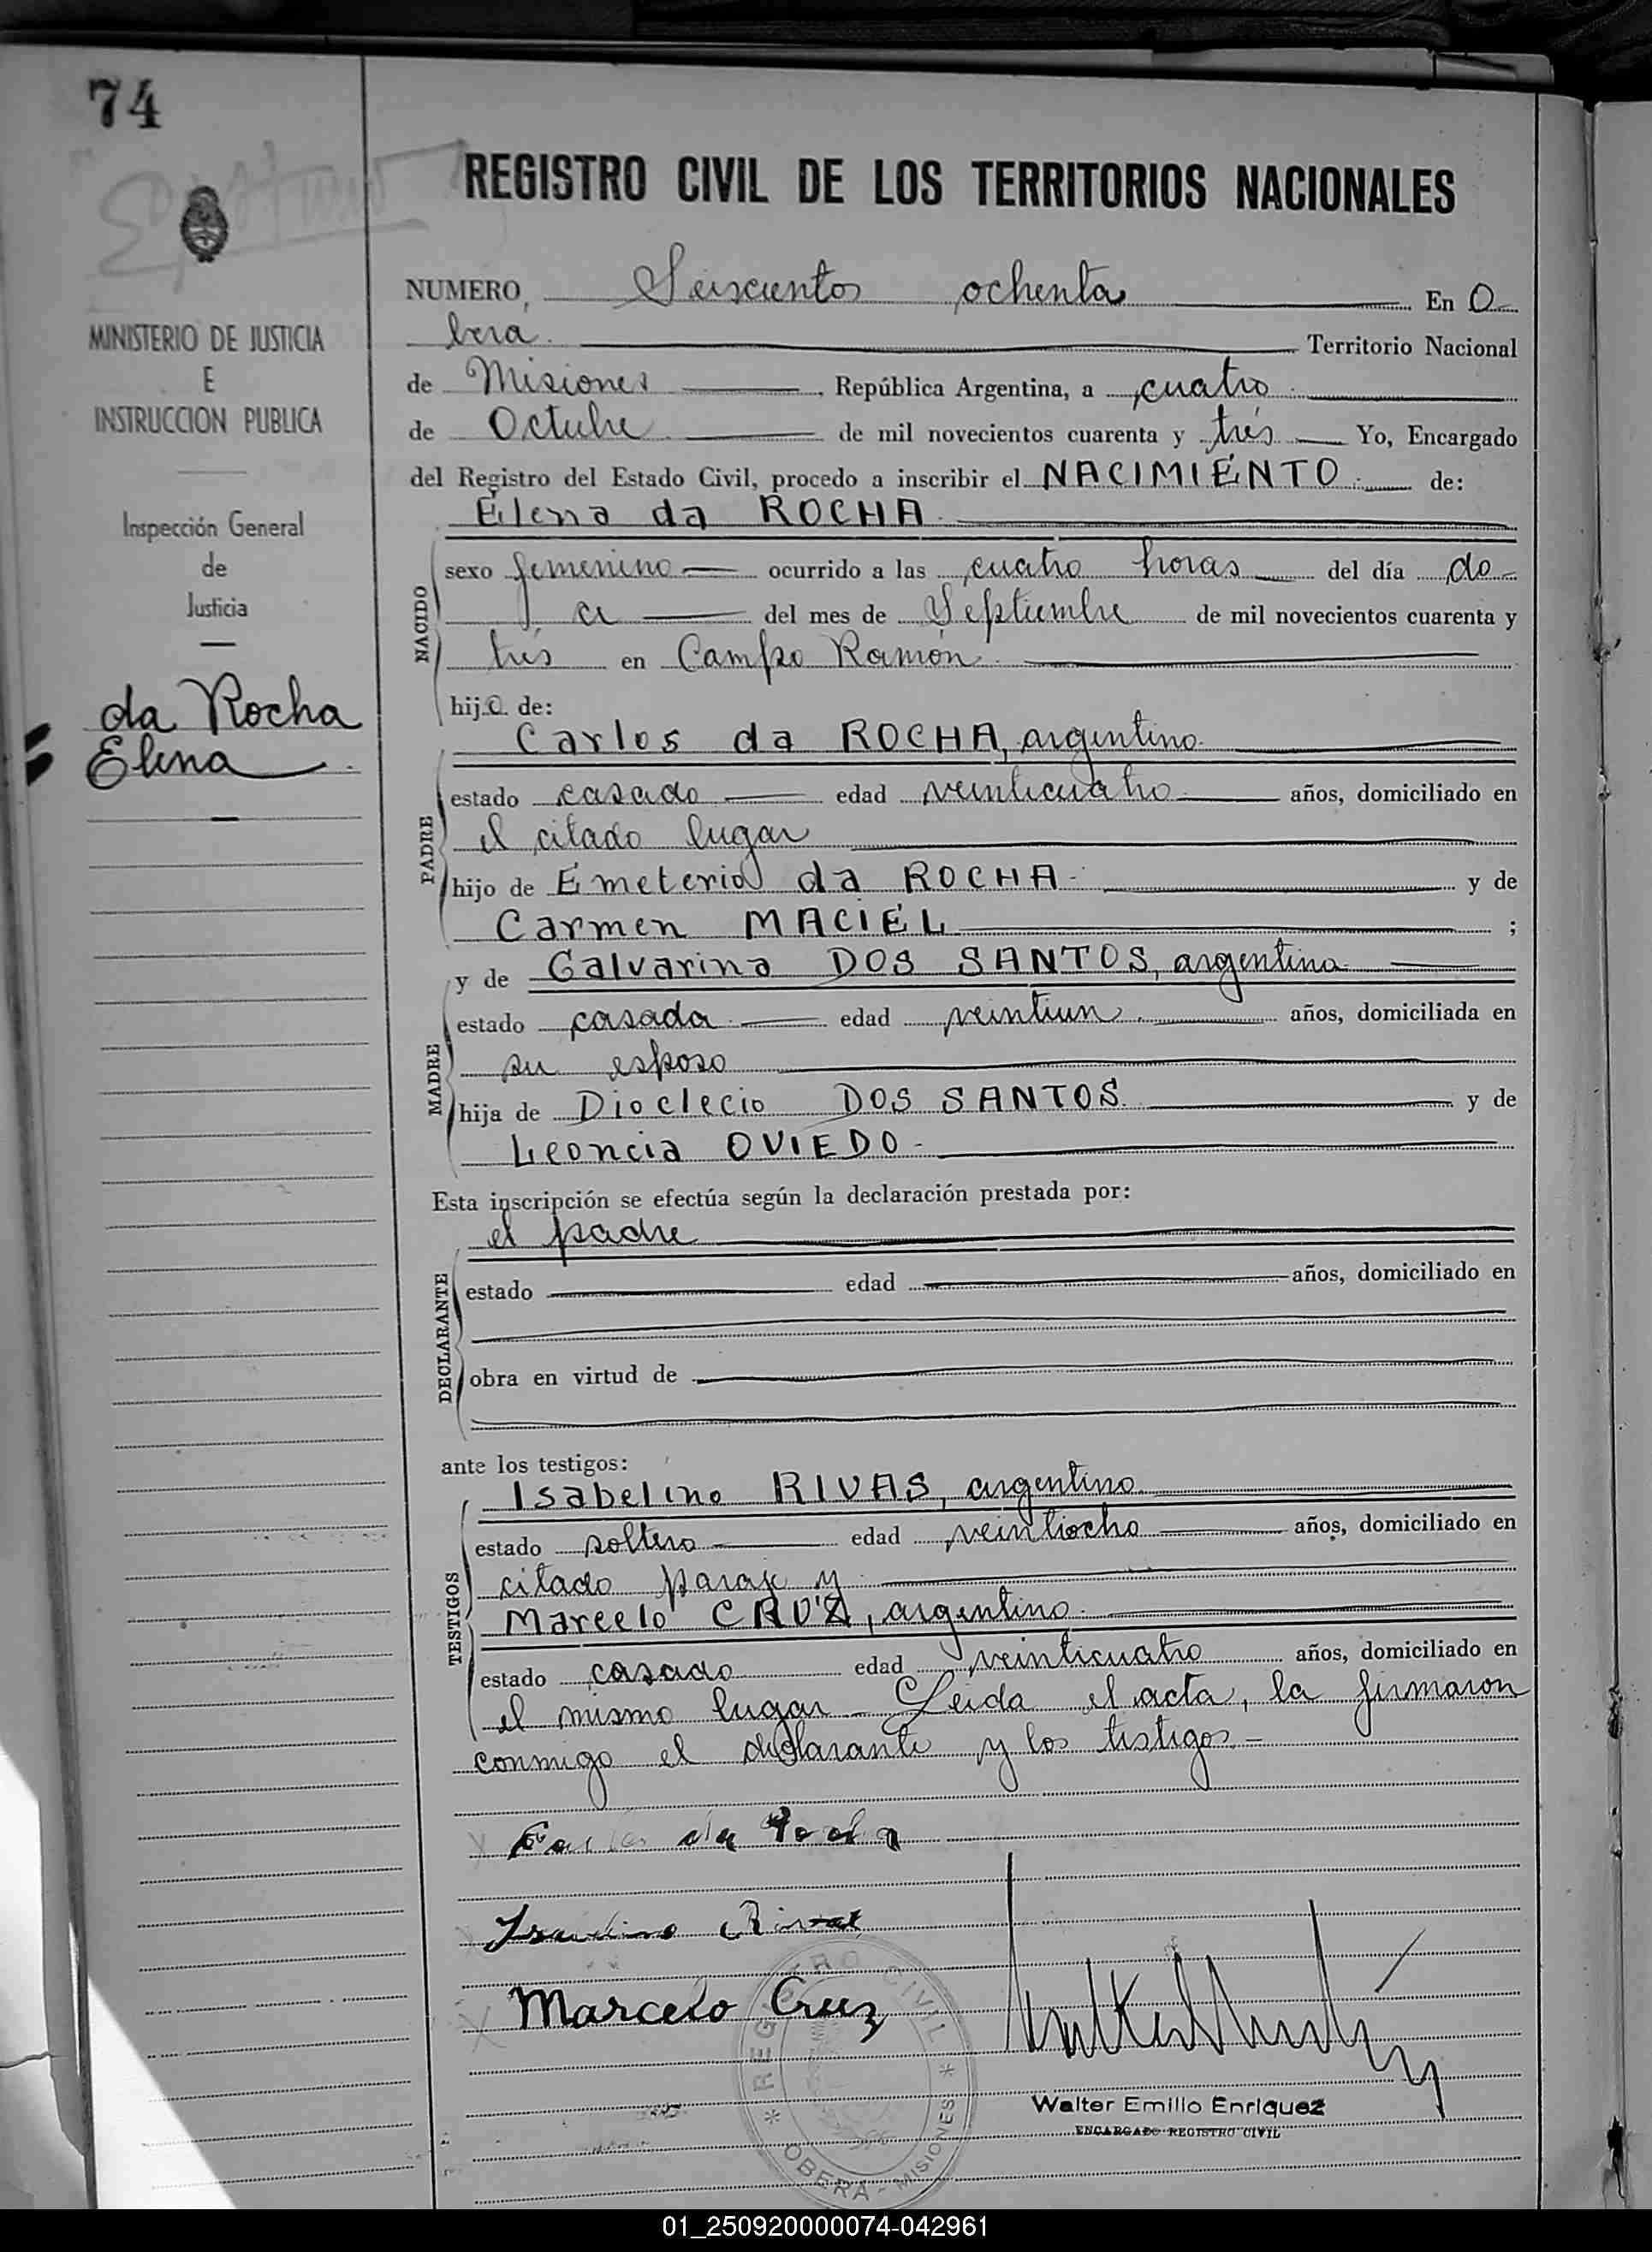 74
REGISTRO CIVIL DE LOS TERRITORIOS NACIONALES
MINISTERIO DE JUSTICIA
E
INSTRUCCION PUBLICA
Inspección General
de
Justicia
da Rocha
Elena
NUMERO, Seiscientos ochenta En O
bera Territorio Nacional
de Misiones, República Argentina, a cuatro
de Octubre de mil novecientos cuarenta y trés Yo, Encargado
del Registro del Estado Civil, procedo a inscribir el NACIMIENTO de:
Elena da ROCHA
NACIDO
sexo femenino ocurrido a las cuatro horas del día do-
ce del mes de Septiembre de mil novecientos cuarenta y
trés en Campo Ramón
hija de:
PADRE
Carlos da ROCHA, argentino
estado casado edad veinticuatro años, domiciliado en
el citado lugar
hijo de Emeterio da ROCHA y de
Carmen MACIEL ;
MADRE
y de Galvarina DOS SANTOS, argentina
estado casada edad veintiun años, domiciliada en
su esposo
hija de Dioclecio DOS SANTOS y de
Leoncia OVIEDO
Esta inscripción se efectúa según la declaración prestada por:
DECLARANTE
el padre
estado edad años, domiciliado en
obra en virtud de
ante los testigos:
TESTIGOS
Isabelino RIVAS, argentino
estado soltero edad veintiocho años, domiciliado en
citado paraje y
Marcelo CRUZ, argentino
estado casado edad veinticuatro años, domiciliado en
el mismo lugar - Leida el acta, la firmaron
conmigo el declarante y los testigos -
Carlos da Rocha
Rivas
Marcelo Cruz
REGISTRO CIVIL
* OBERA - MISIONES *
Walter Emilio Enriquez
ENCARGADO REGISTRO CIVIL
01_250920000074-042961